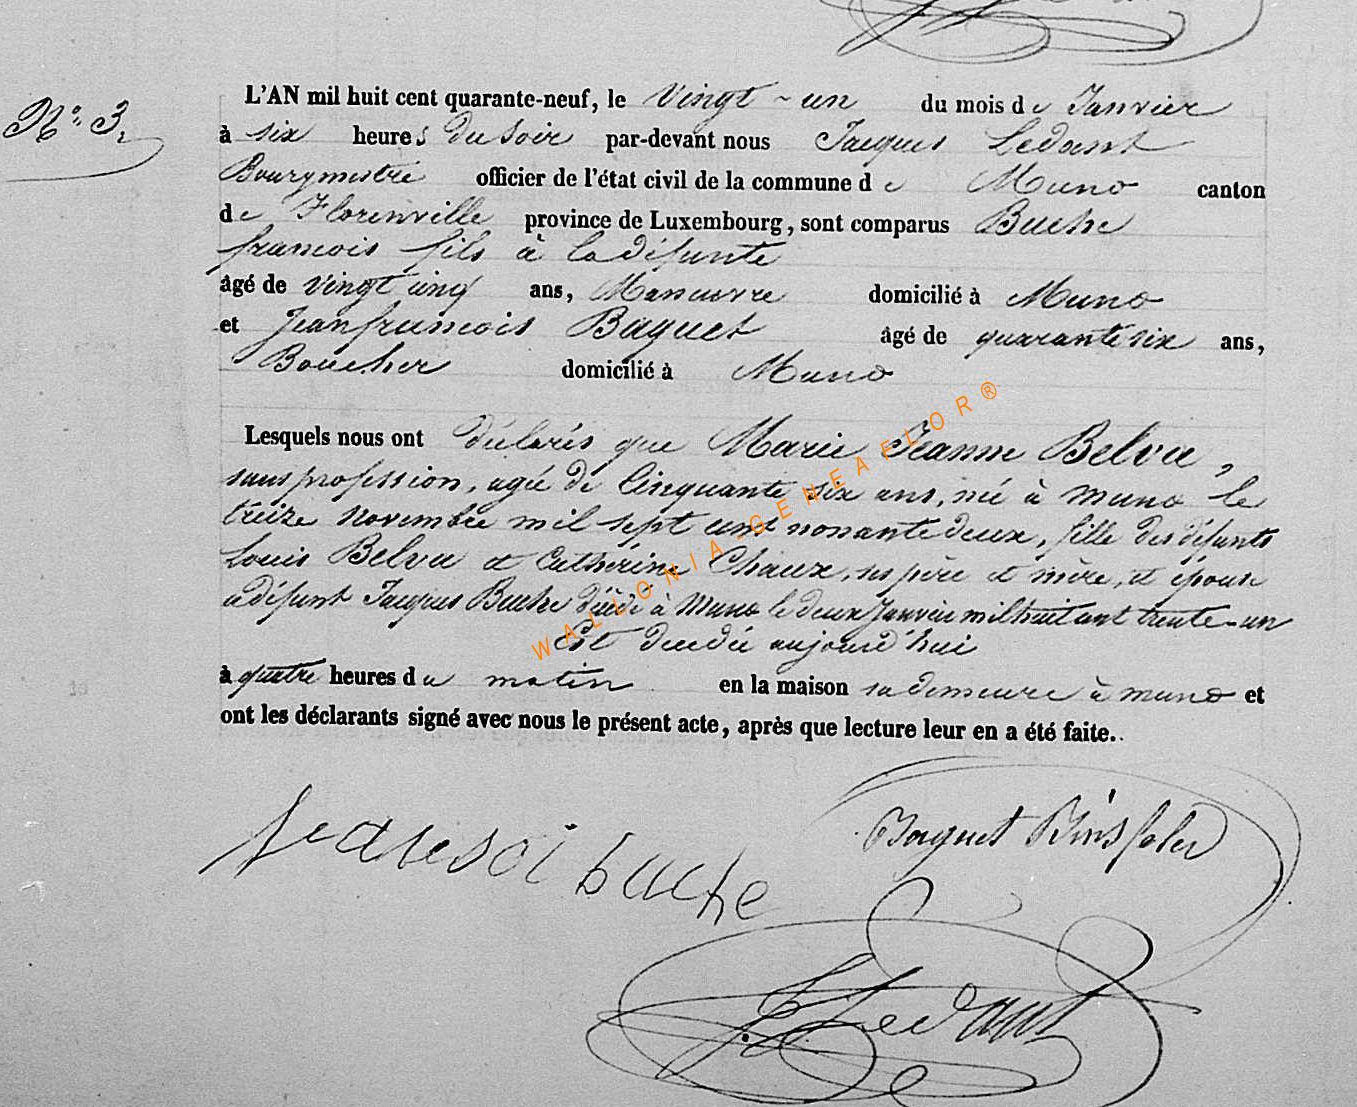 N° 3.
L'AN mil huit cent quarante-neuf, le Vingt-un du mois de Janvier
à six heures du Soir par-devant nous Jacques Ledant
Bourgmestre officier de l'état civil de la commune de Muno canton
de Florenville province de Luxembourg, sont comparus Buche
francois fils à la défunte
âgé de vingt cinq ans, Manœuvre domicilié à Muno
et Jean francois Baguet âgé de quarante six ans,
Boucher domicilié à Muno
Lesquels nous ont déclarés que Marie Jeanne Belva,
sans profession, agée de Cinquante six ans, née à Muno le
treize Novembre mil sept cent nonante deux, fille des défunts
Louis Belva et Cathérine Chaux, ses père et mère, et épouse
à défunt Jacques Buche décédé à Muno le deux Janvier mil huit cent trente-un
Est decedée aujourd'hui
à quatre heures du matin en la maison sa demeure à Muno et
ont les déclarants signé avec nous le présent acte, après que lecture leur en a été faite..
WALLONIA-GENEAFLOR®
Baguet
buche
J Ledant